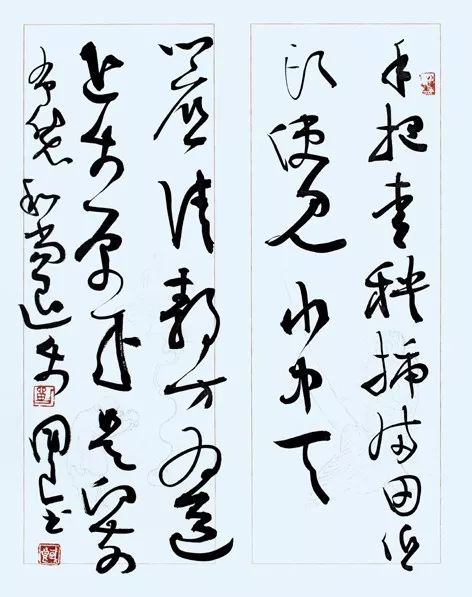 手把青秧插满田低
头便见水中天
心底清静方为道
退步原来是向前
布袋和尚退步
书